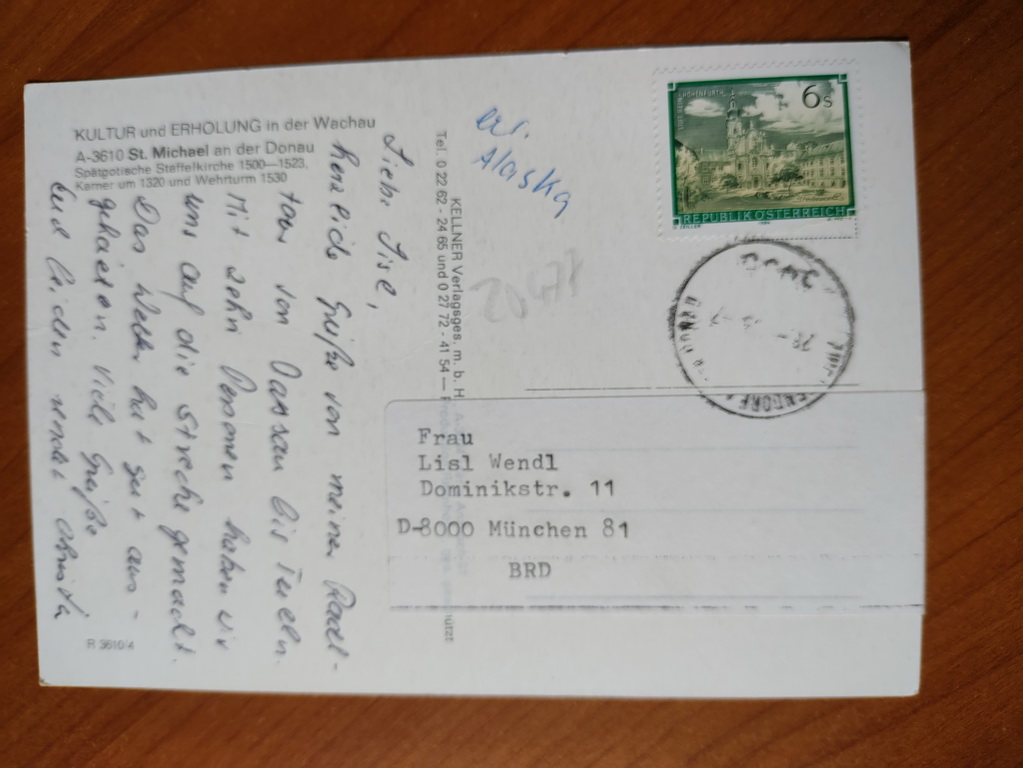 KULTUR und ERHOLUNG in der Wachau
A-3610 St. Michael an der Donau
Spätgotische Staffelkirche 1500—1523,
Karner um 1320 und Wehrturm 1530
Liebe Lisl,
herzliche Grüße von meiner Radl-
tour von Passau bis Tulln.
Mit zehn Personen haben wir
uns auf die Strecke gemacht.
Das Wetter hat gut aus-
gehalten. Viele Grüße
Euch beiden sendet
R 3610/4
KELLNER Verlagsges. m. b. H.
Tel. 0 22 62 - 24 65 und 0 27 72 - 41 54 —
erl.
Alaska
6s
HOHENFURTH
REPUBLIK ÖSTERREICH
Frau
Lisl Wendl
Dominikstr. 11
D-8000 München 81
BRD